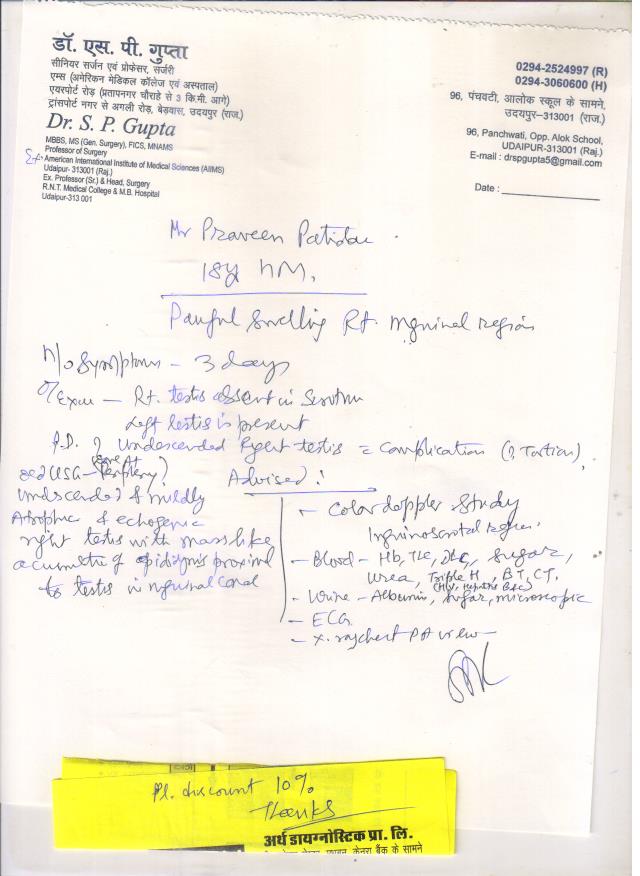 डॉ. एस. पी. गुप्ता
सीनियर सर्जन एवं प्रोफेसर, सर्जरी
एम्स (अमेरिकन मेडिकल कॉलेज एवं अस्पताल)
एयरपोर्ट रोड़ (प्रतापनगर चौराहे से 3 कि.मी. आगे)
ट्रांसपोर्ट नगर से अगली रोड़, बेड़वास, उदयपुर (राज.)
Dr. S. P. Gupta
MBBS, MS (Gen. Surgery), FICS, MNAMS
Professor of Surgery
Ex. American International Institute of Medical Sciences (AIIMS)
Udaipur- 313001 (Raj.)
Ex. Professor (Sr.) & Head, Surgery
R.N.T. Medical College & M.B. Hospital
Udaipur-313 001
0294-2524997 (R)
0294-3060600 (H)
96, पंचवटी, आलोक स्कूल के सामने,
उदयपुर–313001 (राज.)
96, Panchwati, Opp. Alok School,
UDAIPUR-313001 (Raj.)
E-mail : drspgupta5@gmail.com
Date :
Mr Praveen Patidar
18y hM,
Painful swelling Rt. inguinal region
H/o Symptoms - 3 days
O/Exam - Rt. testis absent in scrotum
Left testis is present
P.D. ? Undescended Right testis = Complication (? Tortion)
USG - Periphery)
undescended & mildly
Atrophic & echogenic
right testis with mass like
of epididymis proximal
to testis in inguinal canal
Advised :
- Color doppler study
Inguinoscrotal region
- Blood - Hb, TLC, DLC, Sugar,
Urea, Triple H, BT, CT,
(HIV, Hepatitis B&C)
- Urine - Albumin, sugar, microscopic
- ECG
- X-ray chest PA view
Pl. discount 10%
Thanks
अर्थ डायग्नोस्टिक प्रा. लि.
केनरा बैंक के सामने